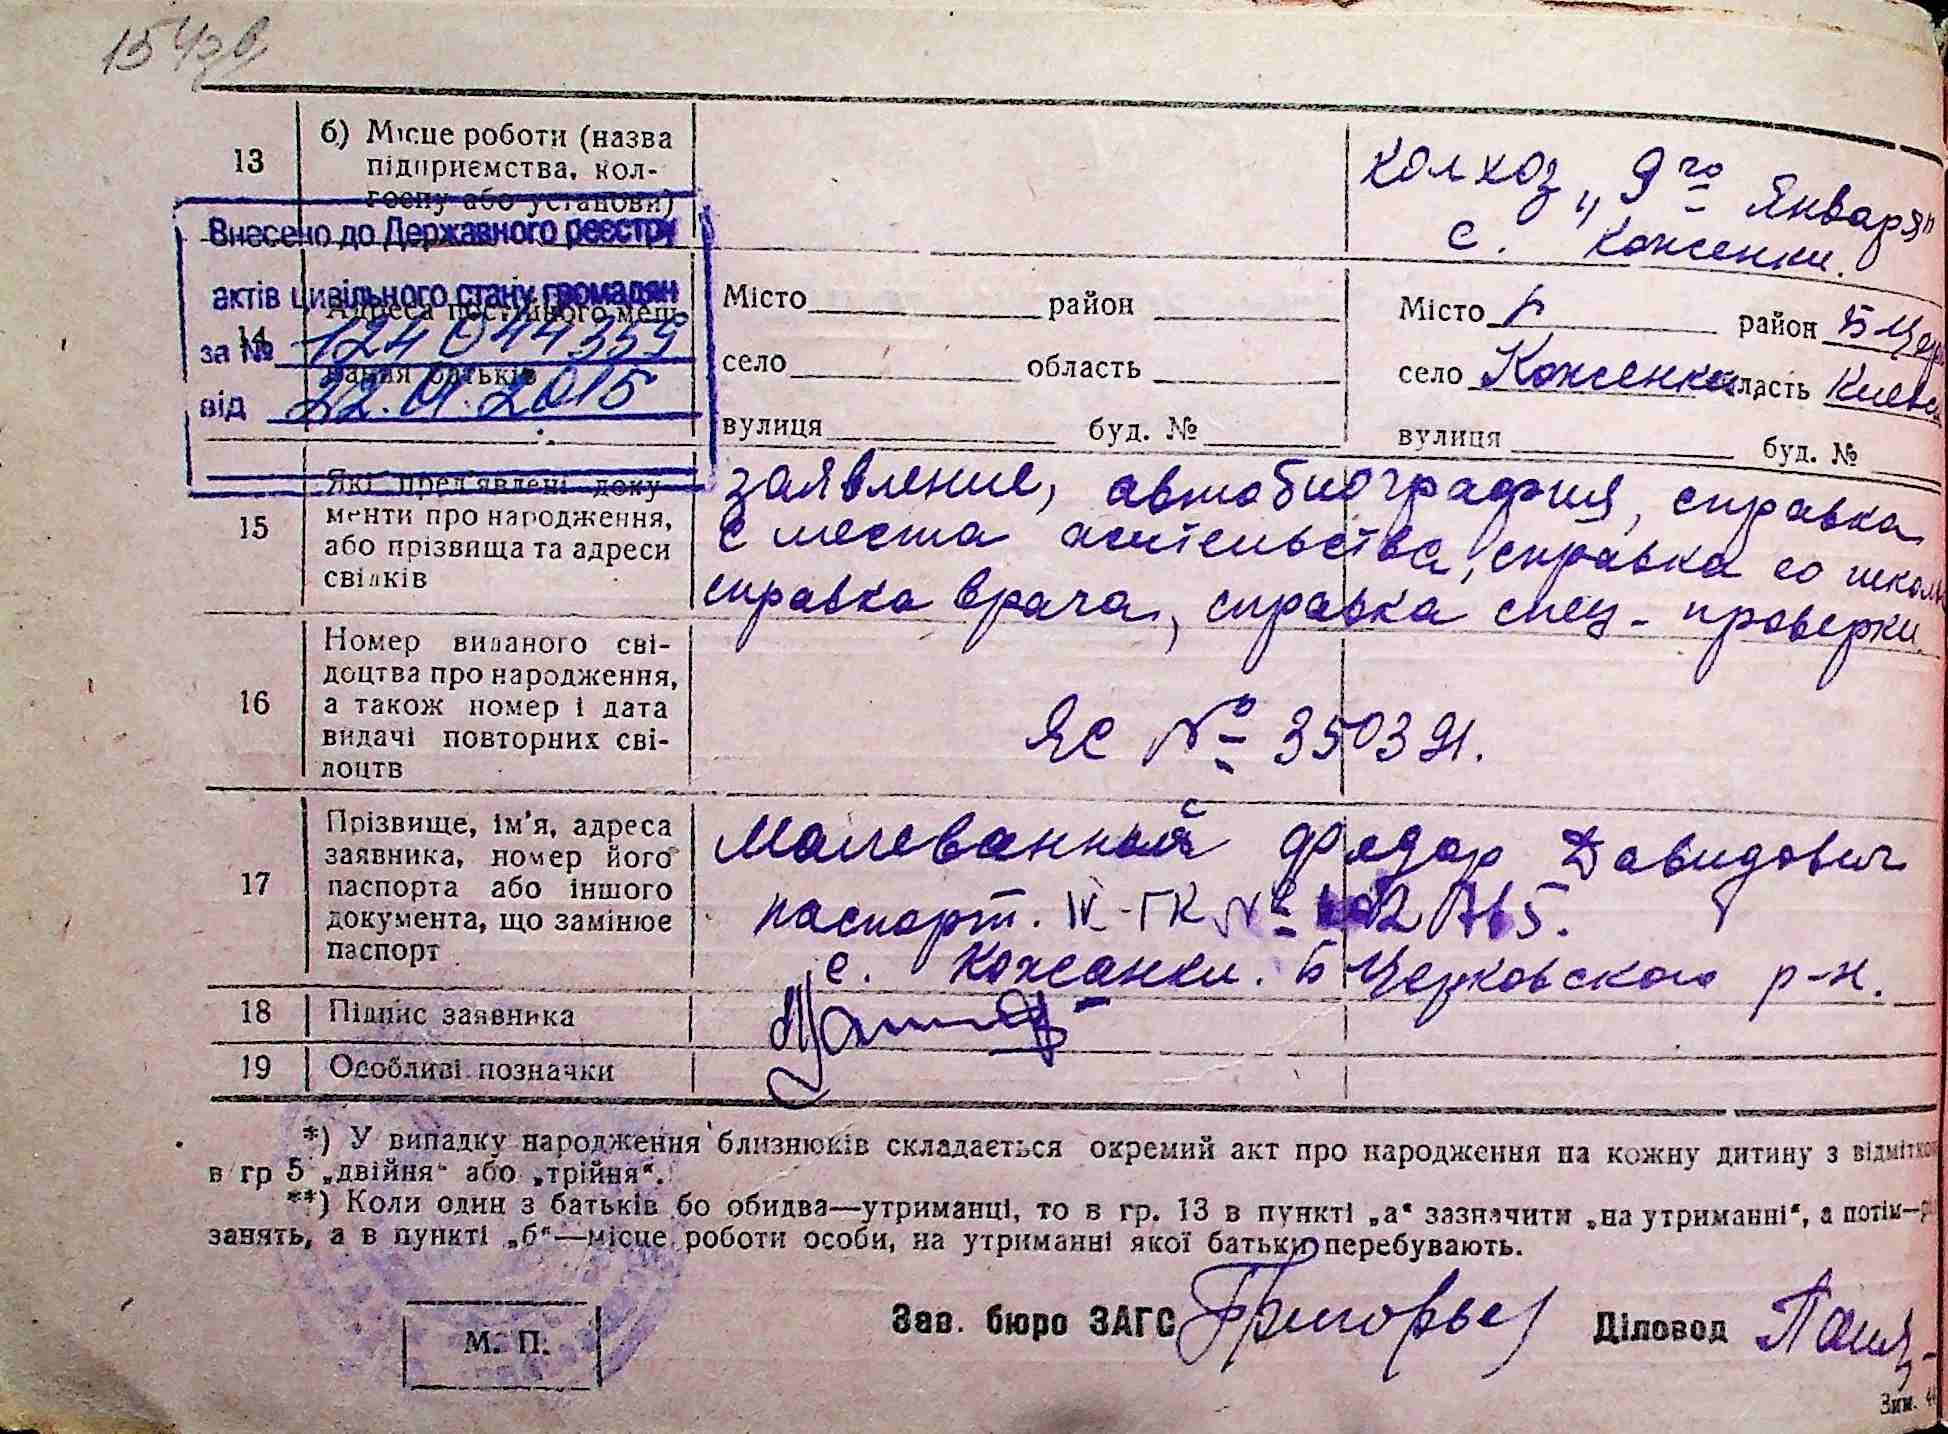 154зв
13
б) Місце роботи (назва
підприємства, кол-
госпу або установи)
колхоз „9го Января"
с. Коженки.
Внесено до Державного реєстру
актів цивільного стану громадян
за № 124 044359
від 22.01.2015
14
Адреса постійного меш-
кання батьків
Місто район
село область
вулиця буд. №
Місто район Б Цер
село Коженки область Киевс
вулиця буд. №
15
Які пред'явлені доку-
менти про народження,
або прізвища та адреси
свідків
заявление, автобиография, справка
с места жительства, справка со школы
справка врача, справка спец-проверки.
16
Номер виданого сві-
доцтва про народження,
а також номер і дата
видачі повторних сві-
доцтв
ЯС № 350391.
17
Прізвище, ім'я, адреса
заявника, номер його
паспорта або іншого
документа, що замінює
паспорт
Малеванный Федор Давидович
паспорт. IV-ГК №
с. Кожанки. Б Церковского р-н.
18
Підпис заявника
19
Особливі позначки
*) У випадку народження близнюків складається окремий акт про народження на кожну дитину з відміткою
в гр 5 „двійня" або „трійня".
**) Коли один з батьків бо обидва—утриманці, то в гр. 13 в пункті „а" зазначити „на утриманні", а потім—р
занять, а в пункті „б"—місце роботи особи, на утриманні якої батьки перебувають.
М. П.
Зав. бюро ЗАГС Григорьев Діловод
Зам.